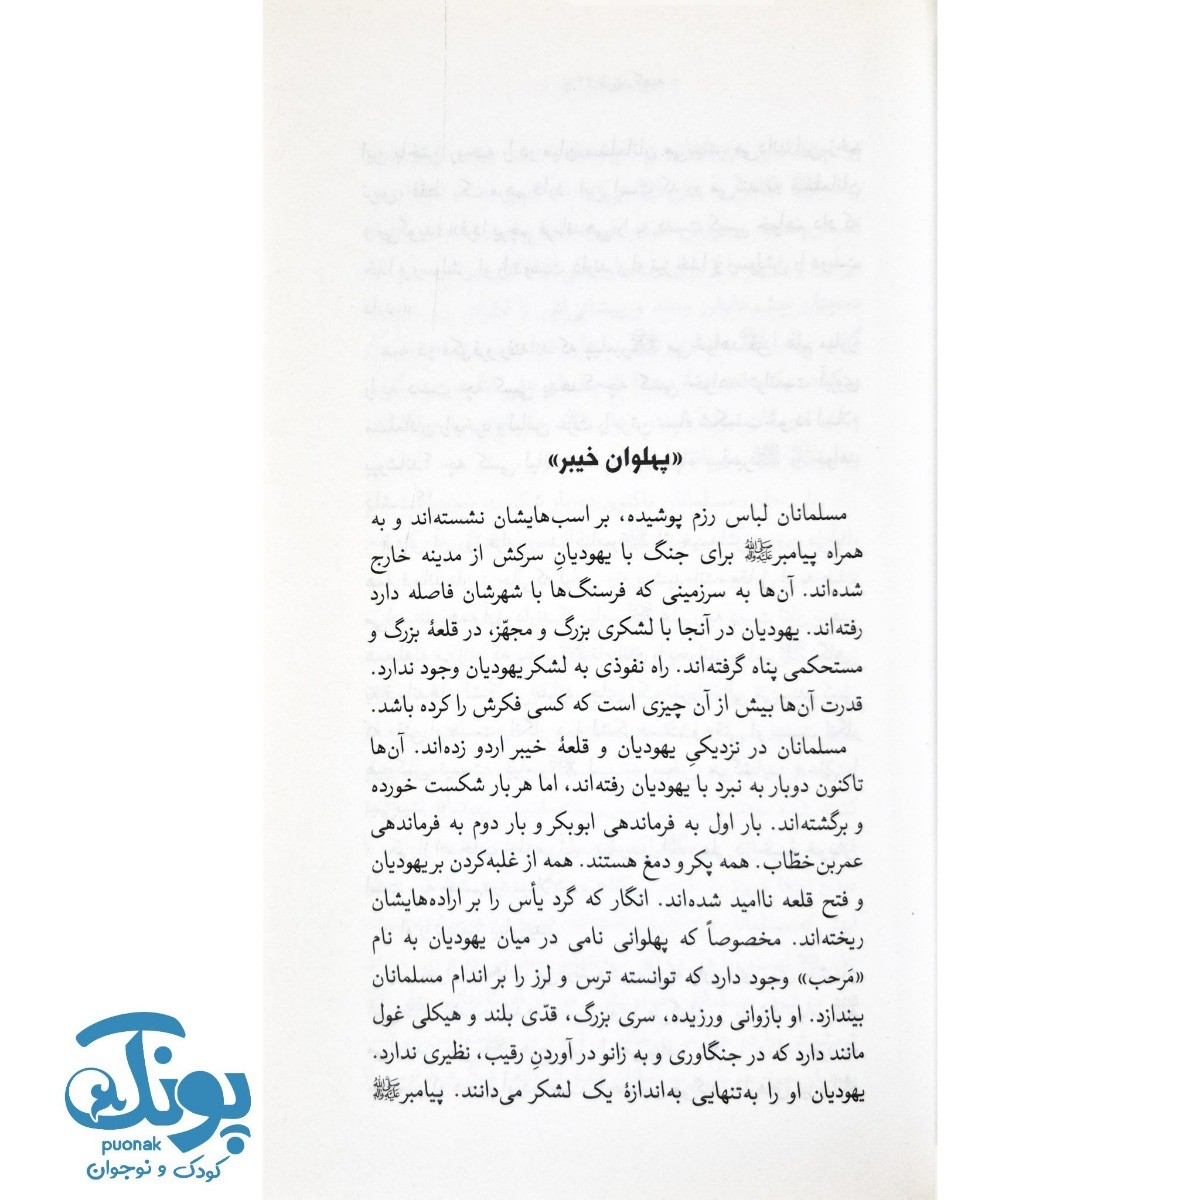 «پهلوان خیبر»
مسلمانان لباس رزم پوشیده، بر اسب‌هایشان نشسته‌اند و به
همراه پیامبرﷺ برای جنگ با یهودیانِ سرکش از مدینه خارج
شده‌اند. آن‌ها به سرزمینی که فرسنگ‌ها با شهرشان فاصله دارد
رفته‌اند. یهودیان در آنجا با لشکری بزرگ و مجهّز، در قلعهٔ بزرگ و
مستحکمی پناه گرفته‌اند. راه نفوذی به لشکر یهودیان وجود ندارد.
قدرت آن‌ها بیش از آن چیزی است که کسی فکرش را کرده باشد.
مسلمانان در نزدیکیِ یهودیان و قلعهٔ خیبر اردو زده‌اند. آن‌ها
تاکنون دوبار به نبرد با یهودیان رفته‌اند، اما هر بار شکست خورده
و برگشته‌اند. بار اول به فرماندهی ابوبکر و بار دوم به فرماندهی
عمربن‌خطّاب. همه پکر و دمغ هستند. همه از غلبه‌کردن بر یهودیان
و فتح قلعه ناامید شده‌اند. انگار که گرد یأس را بر اراده‌هایشان
ریخته‌اند. مخصوصاً که پهلوانی نامی در میان یهودیان به نام
«مَرحب» وجود دارد که توانسته ترس و لرز را بر اندام مسلمانان
بیندازد. او بازوانی ورزیده، سری بزرگ، قدّی بلند و هیکلی غول
مانند دارد که در جنگاوری و به زانو در آوردنِ رقیب، نظیری ندارد.
یهودیان او را به‌تنهایی به‌اندازهٔ یک لشکر می‌دانند. پیامبرﷺ
پونک
puonak
کودک و نوجوان